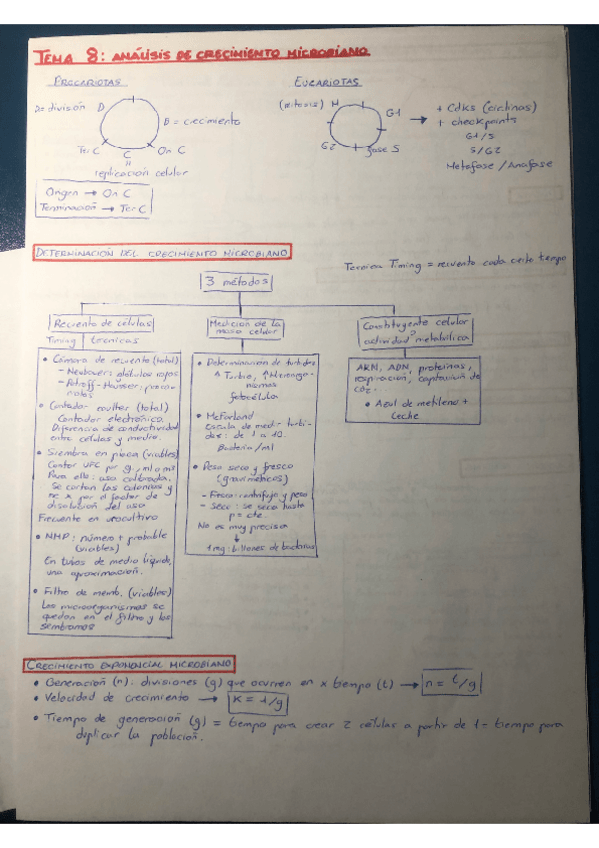 TEMA 8: ANÁLISIS DE CRECIMIENTO MICROBIANO
PROCARIOTAS
D = división
D
B = crecimiento
Ter C
C
On C
=
replicación celular
Origen → On C
Terminación → Ter C
EUCARIOTAS
(mitosis) M
G1
G2
fase S
→ + Cdks (ciclinas)
+ checkpoints
G1/S
S/G2
Metafase / Anafase
DETERMINACIÓN DEL CRECIMIENTO MICROBIANO
Timing = recuento cada cierto tiempo
3 métodos
Recuento de células
Timing técnicas
• Cámara de recuento (total)
- Neubauer: glóbulos rojos
- Petroff-Hausser: proca-
riotas
• Contador coulter (total)
Contador electrónico.
Diferencia de conductividad
entre células y medio.
• Siembra en placa (viables)
Contar UFC por g, ml o m3
Para ello: asa calibrada.
Se cortan las colonias y
se x por el factor de
disolución del asa
Frecuente en urocultivo
• NMP: número + probable
(viables)
En tubos de medio líquido,
una aproximación.
• Filtro de memb. (viables)
Los microorganismos se
quedan en el filtro y los
sembramos
Medición de la
masa celular
• Determinación de turbidez
↑ Turbio, ↑ Microorga-
nismos
fotocélula
• McFarland
Escala de medir turbi-
dez: de 1 a 10.
Bacteria/ml
• Peso seco y fresco
(gravimétricos)
- Fresco: centrifugo y peso
- Seco: se seca hasta
p = cte.
No es muy precisa
↓
1 mg: billones de bacterias
Constituyente celular
actividad metabólica
ARN, ADN, proteínas,
respiración, captación de
CO2.
• Azul de metileno +
leche
CRECIMIENTO EXPONENCIAL MICROBIANO
• Generación (n): divisiones (g) que ocurren en x tiempo (t) → n = t/g
• Velocidad de crecimiento → K = 1/g
• Tiempo de generación (g) = tiempo para crear 2 células a partir de 1 = tiempo para
duplicar la población.